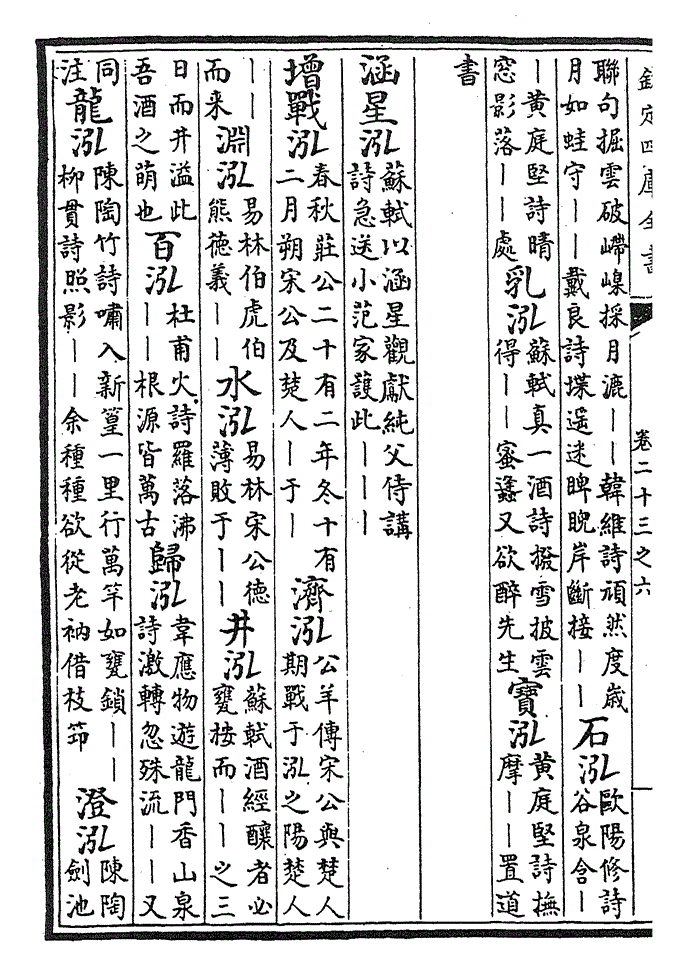 欽定四庫全書 卷二十三之六
聯句掘雲破嵽嵲採月漉——韓維詩頑然度歲
月如蛙守——戴良詩堞遥迷睥睨岸斷接——
石泓
歐陽修詩
谷泉含—
—黄庭堅詩晴
窓影落——處
乳泓
蘇軾真一酒詩撥雪披雲
得——蜜蠭又欲醉先生
寶泓
黄庭堅詩撫
摩——置道
書
涵星泓
蘇軾以涵星觀獻純父侍講
詩急送小范家護此———
增戰泓
春秋莊公二十有二年冬十有
二月朔宋公及楚人—于—
濟泓
公羊傳宋公與楚人
期戰于泓之陽楚人
——
而来
淵泓
易林伯虎伯
熊德義——
水泓
易林宋公德
薄敗于——
井泓
蘇軾酒經釀者必
甕按而——之三
日而井溢此
吾酒之萌也
百泓
杜甫火詩羅落沸
——根源皆萬古
歸泓
韋應物遊龍門香山泉
詩激轉忽殊流——又
同
注
龍泓
陳陶竹詩嘯入新篁一里行萬竿如甕鎖——
柳貫詩照影——余種種欲從老衲借枝笻
澄泓
陳陶
劍池